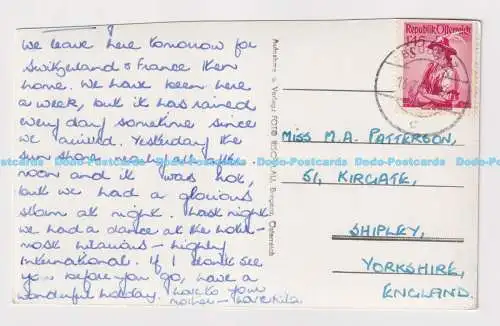 We leave here tomorrow for
Switzerland & France then
home. We have been here
a week, but it has rained
every day sometime since
we arrived. Yesterday the
sun shone nearly all after
noon and it was hot,
but we had a glorious
storm at night. Last night
we had a dance at the hotel-
most hilarious - highly
International. If I don't see
you before you go, have a
wonderful holiday. Love to your
mother - love Rita.
Aufnahme u. Verlag: FOTO RISCH-LAU, Bregenz, Österreich
Republik Österreich
MISS M. A. PATTERSON,
51, KIRGATE,
SHIPLEY,
YORKSHIRE,
ENGLAND.
Dodo-Postcards Dodo-Postcards Dodo-Postcards Dodo-Postcards Dodo-Postcards